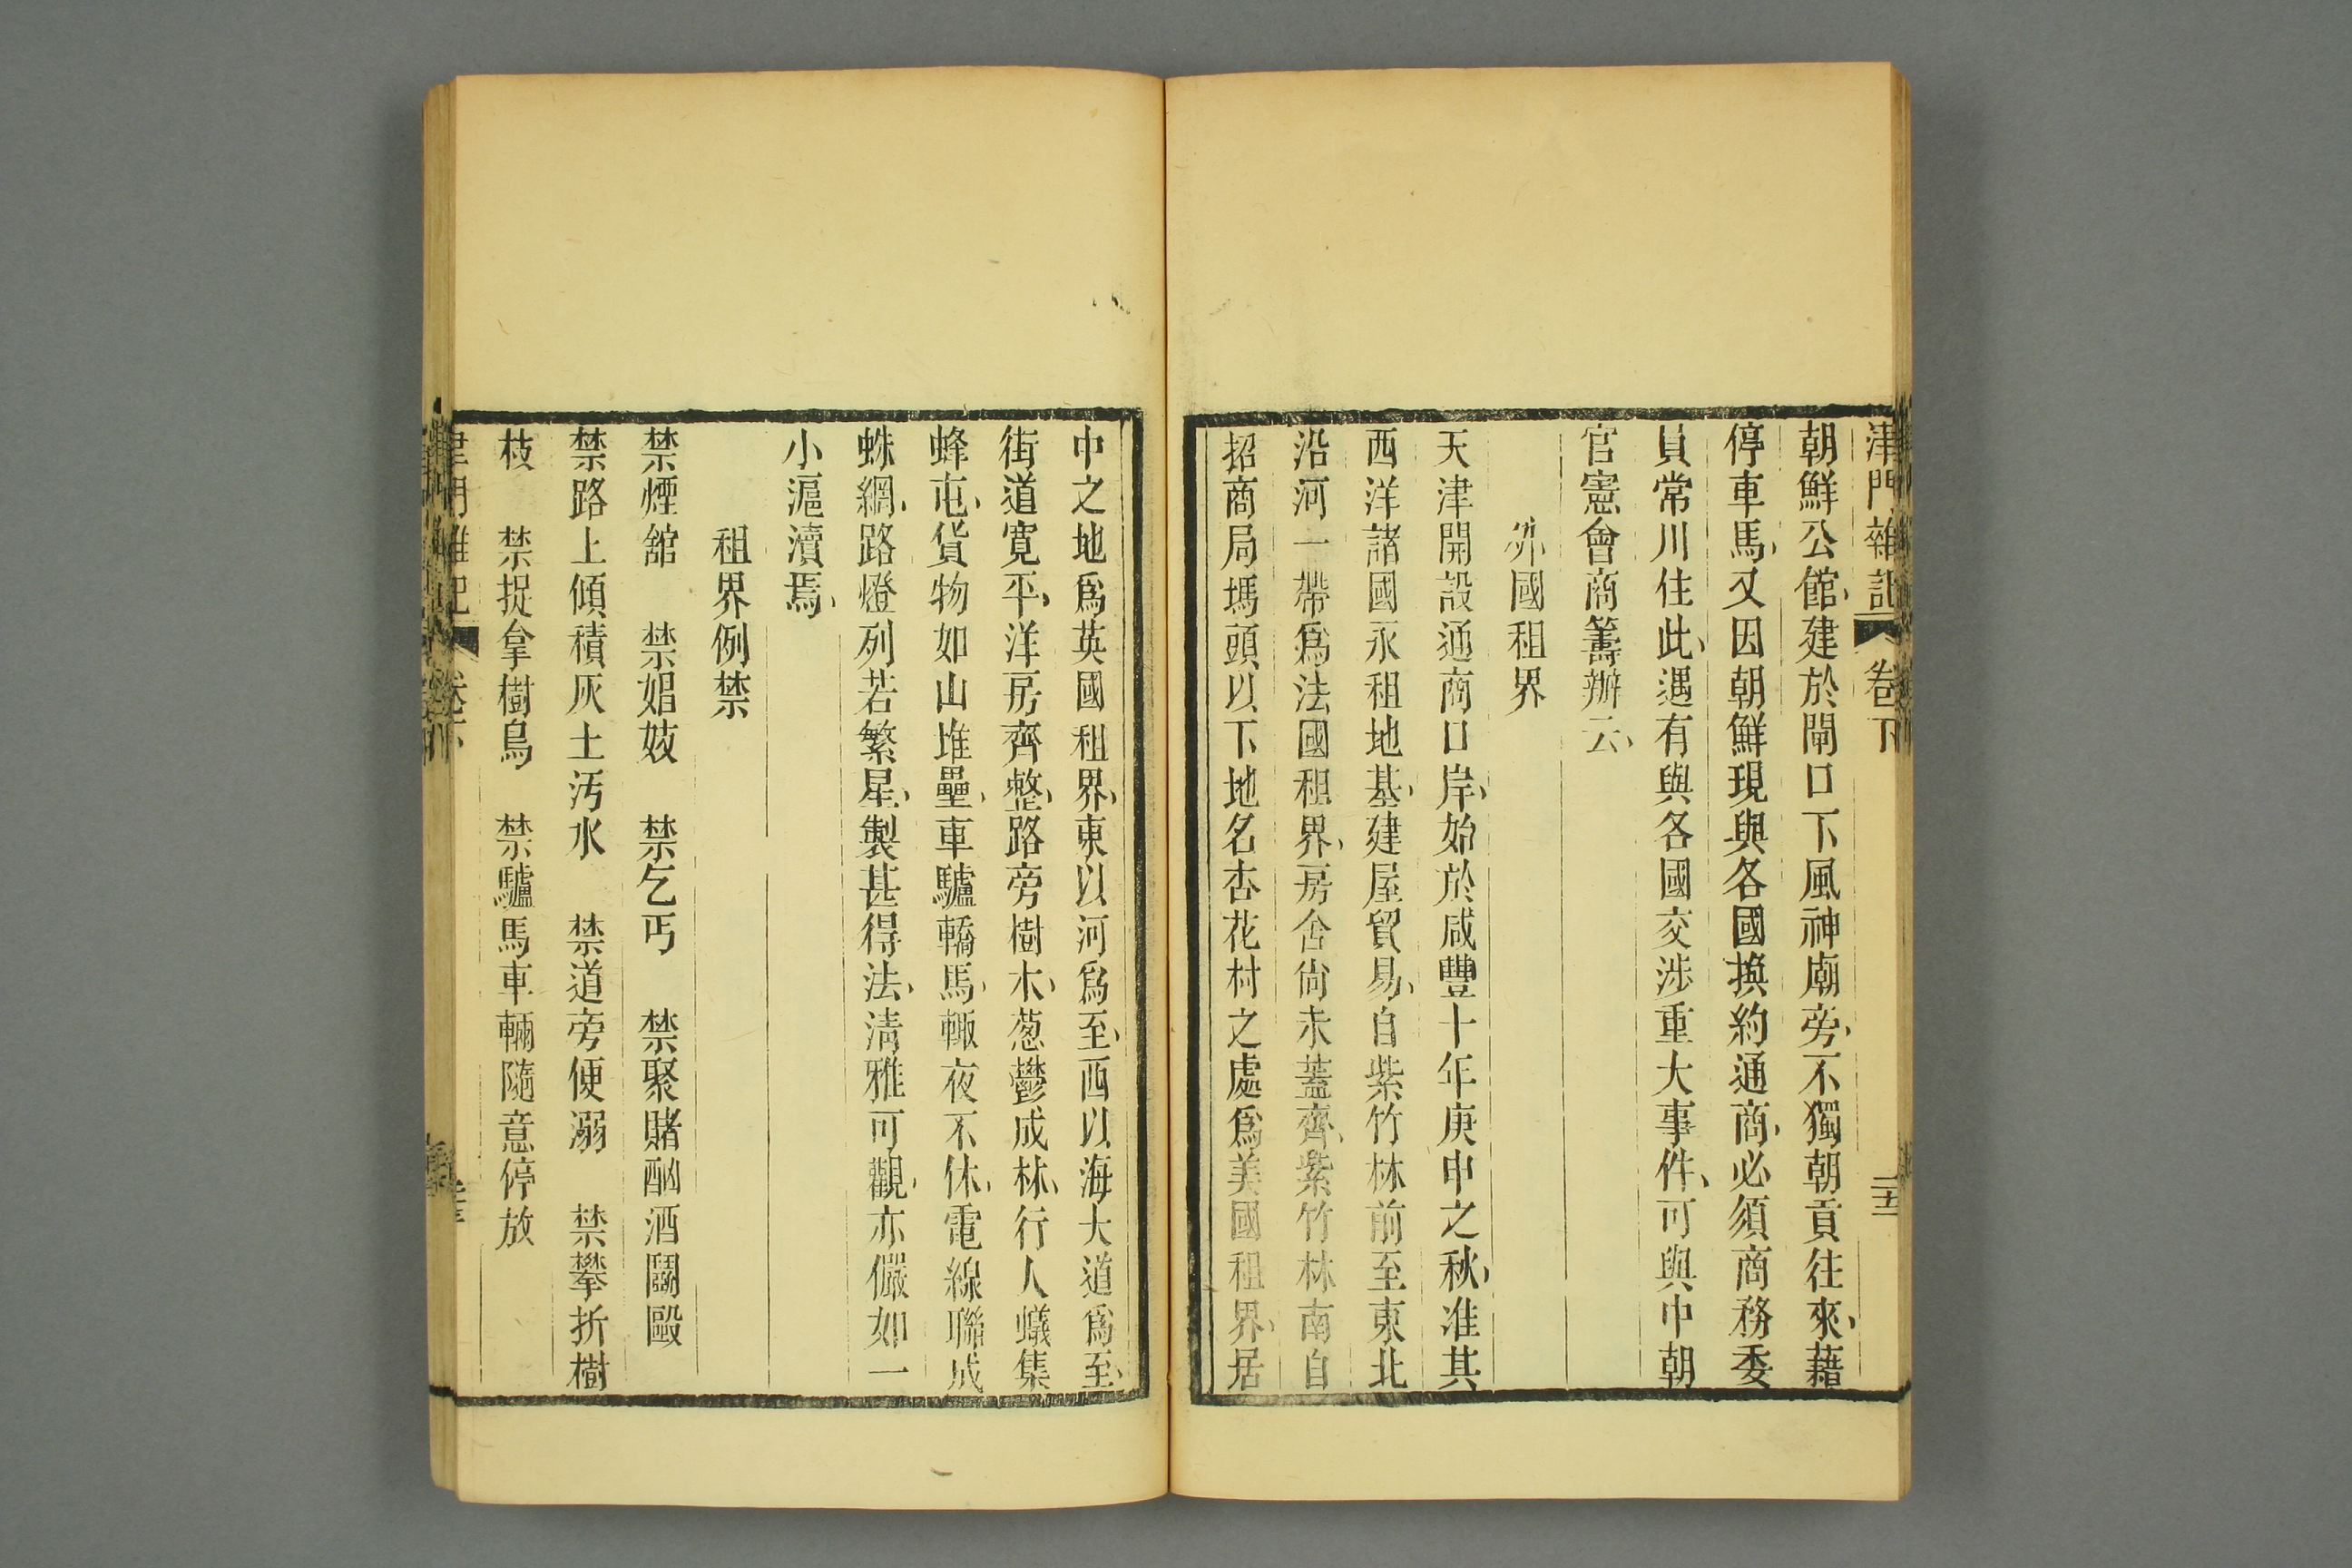 津門雜記 卷下 二十三
朝鮮公館、建於閘口下風神廟旁、不獨朝貢往來、藉
停車馬、又因朝鮮現與各國換約通商、必須商務委
員常川住此、遇有與各國交涉重大事件、可與中朝
官憲會商籌辦云、
外國租界
天津開設通商口岸、始於咸豐十年庚申之秋、准其
西洋諸國永租地基、建屋貿易、自紫竹林前至東北
沿河一帶爲法國租界、房舍尙未蓋齊、紫竹林南自
招商局碼頭以下地名杏花村之處爲美國租界、居
中之地爲英國租界、東以河爲至、西以海大道爲至、
街道寬平、洋房齊整、路旁樹木、葱鬱成林、行人蟻集
蜂屯、貨物如山堆壘、車驢轎馬、輙夜不休、電線聯成
蛛網、路燈列若繁星、製甚得法、淸雅可觀、亦儼如一
小滬瀆焉、
租界例禁
禁煙舘 禁娼妓 禁乞丐 禁聚賭酗酒鬭毆
禁路上傾積灰土汚水 禁道旁便溺 禁攀折樹
枝 禁捉拿樹鳥 禁驢馬車輛隨意停放
津門雜記 卷下